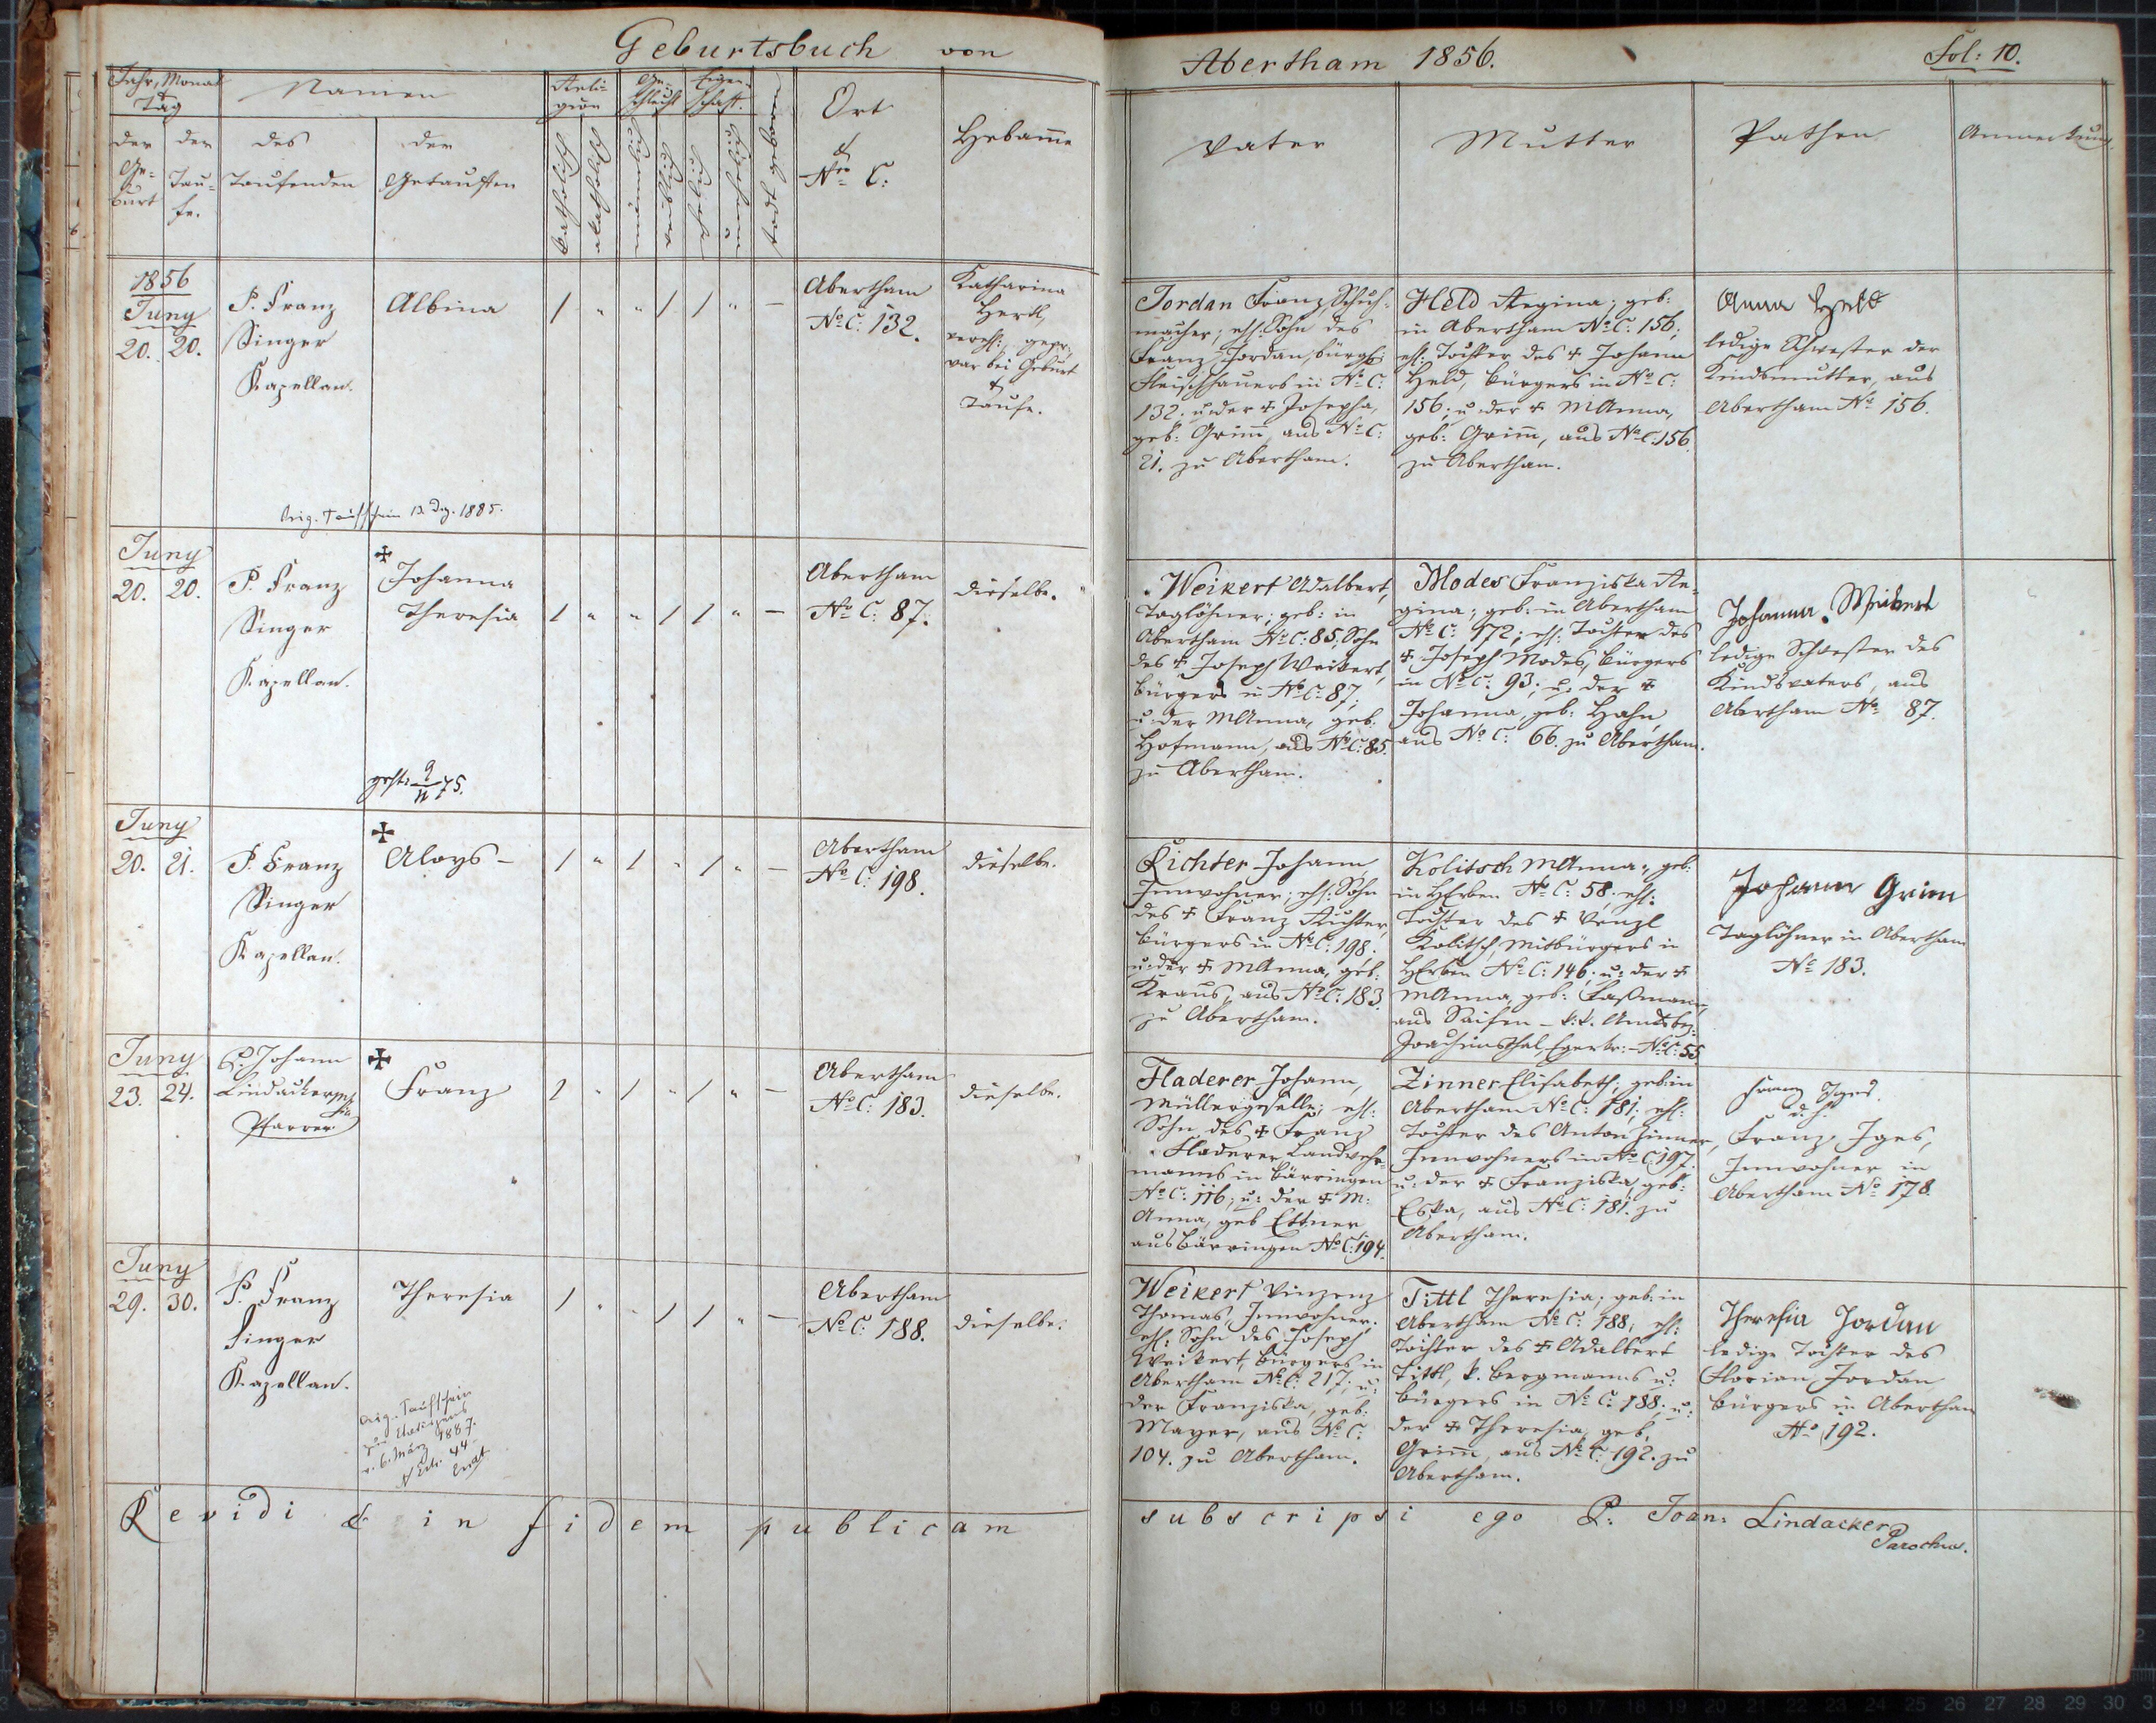 Geburtsbuch von
Abertham 1856. Fol: 10.
Jahr, Monat
&
Tag
Namen
Reli-
gion
Ge-
schlecht
Eigen-
schaft.
todtgeboren
Ort
&
Nro C:
Hebamme
der
Ge-
burt
der
Tau-
fe.
des
Taufenden
der
Getauften
katholisch
akatholisch
männlich
weiblich
ehelich
unehelich
Vater
Mutter
Pathen
Anmerkung
1856
Juny
20. 20.
P. Franz
Singer
Kapellan.
Albina
/ " " / / " —
Abertham
No C: 132.
Katharina
Hertl,
vereh:, gepr:,
war bei Geburt
&
Taufe.
Jordan Franz, Schuh-
macher; ehl: Sohn des
Franz Jordan, bürgl:
Fleischhauers in No C:
132; u: der ✝ Josepha,
geb: Grim̄, aus No C:
21. zu Abertham.
Held Regina; geb:
in Abertham No C: 156;
ehl: Tochter des ✝ Johann
Held, Bürgers in No C:
156; u: der ✝ MAnna,
geb: Grim̄, aus No C: 156.
zu Abertham.
Anna Held
ledige Schwester der
Kindsmutter, aus
Abertham No 156.
Orig. Taufschein 13. Dez. 1885.
Juny
20. 20.
P. Franz
Singer
Kapellan.
✝
Johanna
Theresia
/ " " / / " —
Abertham
No C: 87.
dieselbe.
Weikert Adalbert,
Taglöhner; geb: in
Abertham No C: 85, Sohn
des ✝ Joseph Weikert,
Bürgers in No C: 87;
u: der MAnna, geb:
Hofmann, aus No C: 85.
zu Abertham.
Modes Franziska Re-
gina; geb: in Abertham
No C: 172; ehl: Tochter des
✝ Joseph Modes, Bürgers
in No C: 93; u: der ✝
Johanna, geb: Hahn,
aus No C: 66. zu Abertham.
Johanna Weikert
ledige Schwester des
Kindsvaters, aus
Abertham No 87.
gest: 9/11 75.
Juny
20. 21.
P. Franz
Singer
Kapellan.
✝
Aloys —
/ " / " / " —
Abertham
No C: 198.
dieselbe.
Richter Johann,
Innwohner; ehl: Sohn
des ✝ Franz Richter,
Bürgers in No C: 198.
u: der ✝ MAnna, geb:
Kraus, aus No C: 183.
zu Abertham.
Kolitsch MAnna; geb:
in HErben No C: 58. ehl:
Tochter des ✝ Venzl
Kolitsch, Mitbürgers in
HErben No C: 146; u: der ✝
MAnna, geb: Faßmann,
aus Saifen — k:k. Amtsbez:
Joachimsthal, Egerkr: — No C: 55
Johann Grim
Taglöhner in Abertham
No 183.
Juny
23. 24.
P. Johann
Lindacker
Pfarrer
✝
Franz
/ " / " / " —
Abertham
No C: 183.
dieselbe.
Fladerer Johann,
Müllergeselle; ehl:
Sohn des ✝ Franz
Fladerer Landwehr-
manns in Bärringen
No C: 116; u: der ✝ M:
Anna, geb Ettner
aus Bärringen No C: 194.
Zinner Elisabeth; geb: in
Abertham No C: 181; ehl:
Tochter des Anton Zinner,
Innwohners in No C: 197.
u: der ✝ Franziska, geb:
Eska, aus No C: 181. zu
Abertham.
Franz Iges.
d. h.
Franz Iges,
Innwohner in
Abertham No 178.
Juny
29. 30.
P. Franz
Singer
Kapellan.
Theresia
/ " " / / " —
Abertham
No C: 188.
dieselbe.
Weikert Vinzenz
Thomas, Innwohner;
ehl: Sohn des Joseph
Weikert, Bürgers in
Abertham No C: 217; u:
der Franziska, geb:
Mayer, aus No C:
104. zu Abertham.
Tittl Theresia; geb: in
Abertham No C: 188; ehl:
Tochter des ✝ Adalbert
Tittl, k. Bergmanns u:
Bürgers in No C: 188; u:
der ✝ Theresia, geb.
Grim̄, aus No C: 192. zu
Abertham.
Theresia Jordan
ledige Tochter des
Florian Jordan,
Bürgers in Abertham
No 192.
Orig. Taufschein
v. 6. März 1887.
Revidi & in fidem publicam subscripsi ego P: Joan: Lindacker
Parochus.